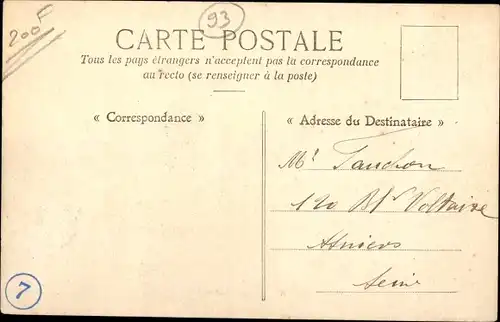 200F
93
CARTE POSTALE
Tous les pays étrangers n'acceptent pas la correspondance
au recto (se renseigner à la poste)
« Correspondance »
« Adresse du Destinataire »
Mr
120 Bd Voltaire
Asnieres
Seine
7